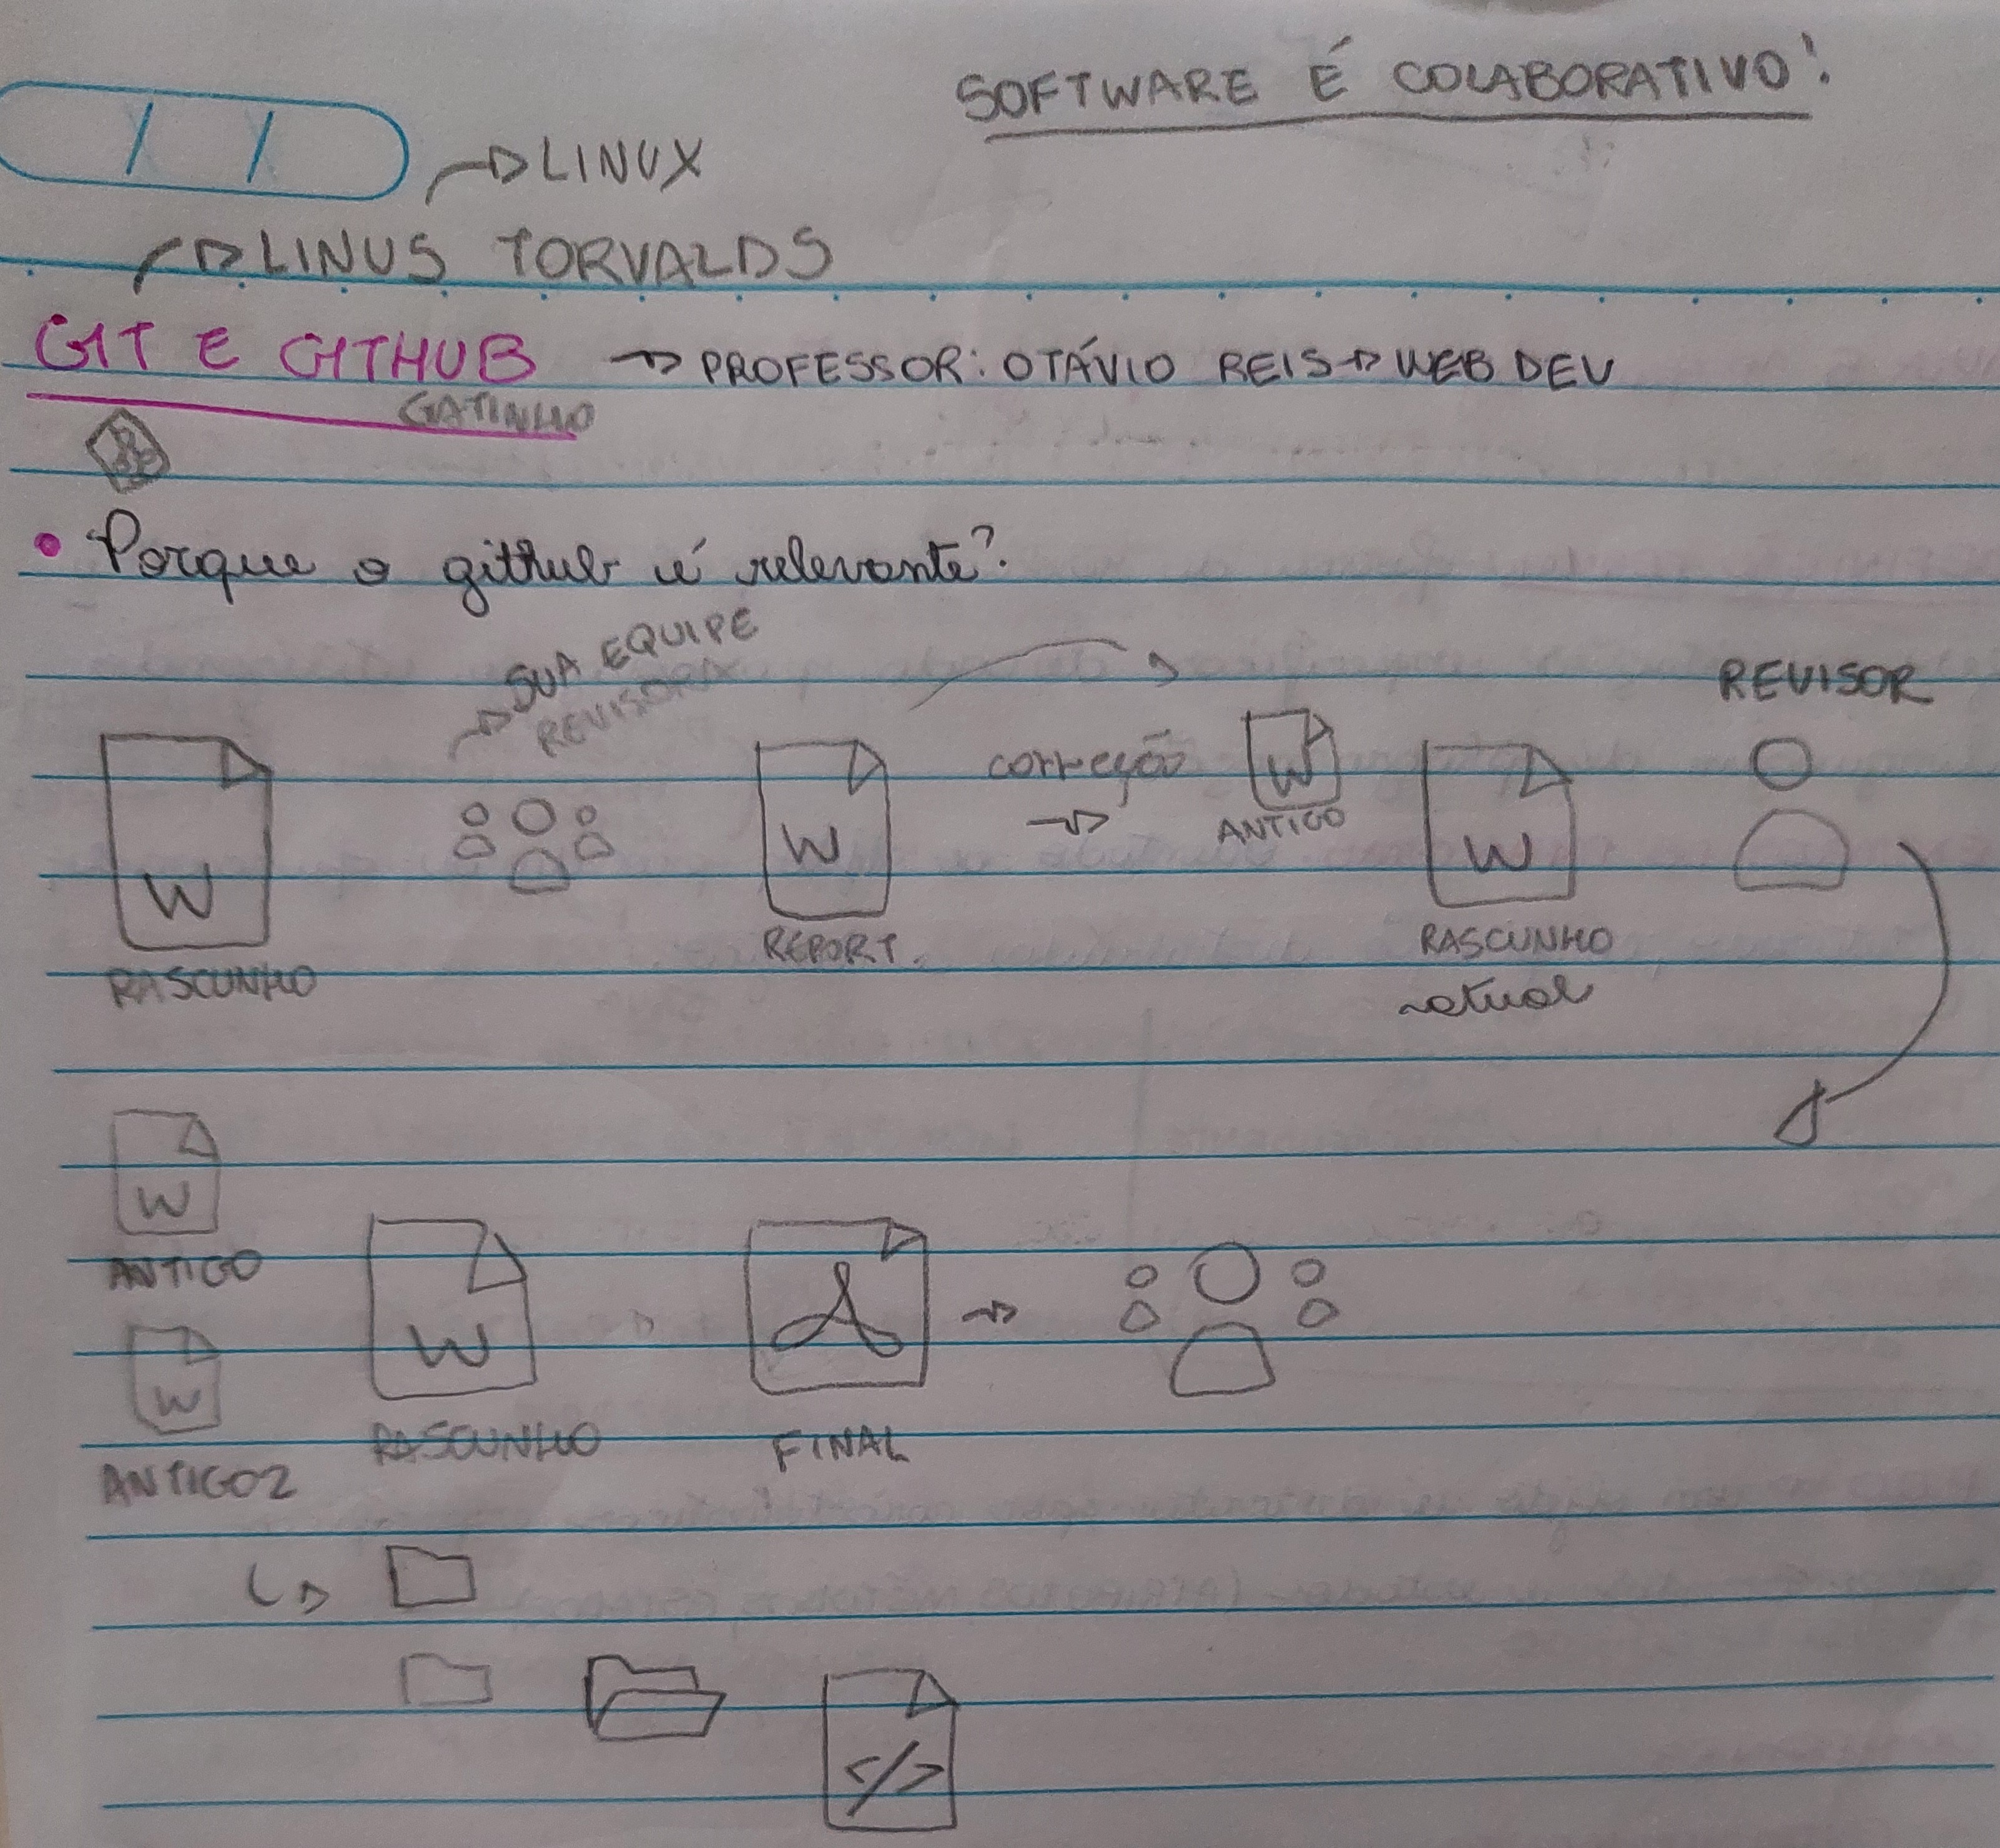 SOFTWARE É COLABORATIVO!
LINUX
LINUS TORVALDS
GIT E GITHUB → PROFESSOR: OTÁVIO REIS → WEB DEV
GATINHO
• Porque o github é relevante?
SUA EQUIPE
REVISORA
REVISOR
correção →
W
W
W
W
ANTIGO
RASCUNHO
REPORT.
RASCUNHO
atual
W
ANTIGO
W
W
ANTIGO2
RASCUNHO
FINAL
</>